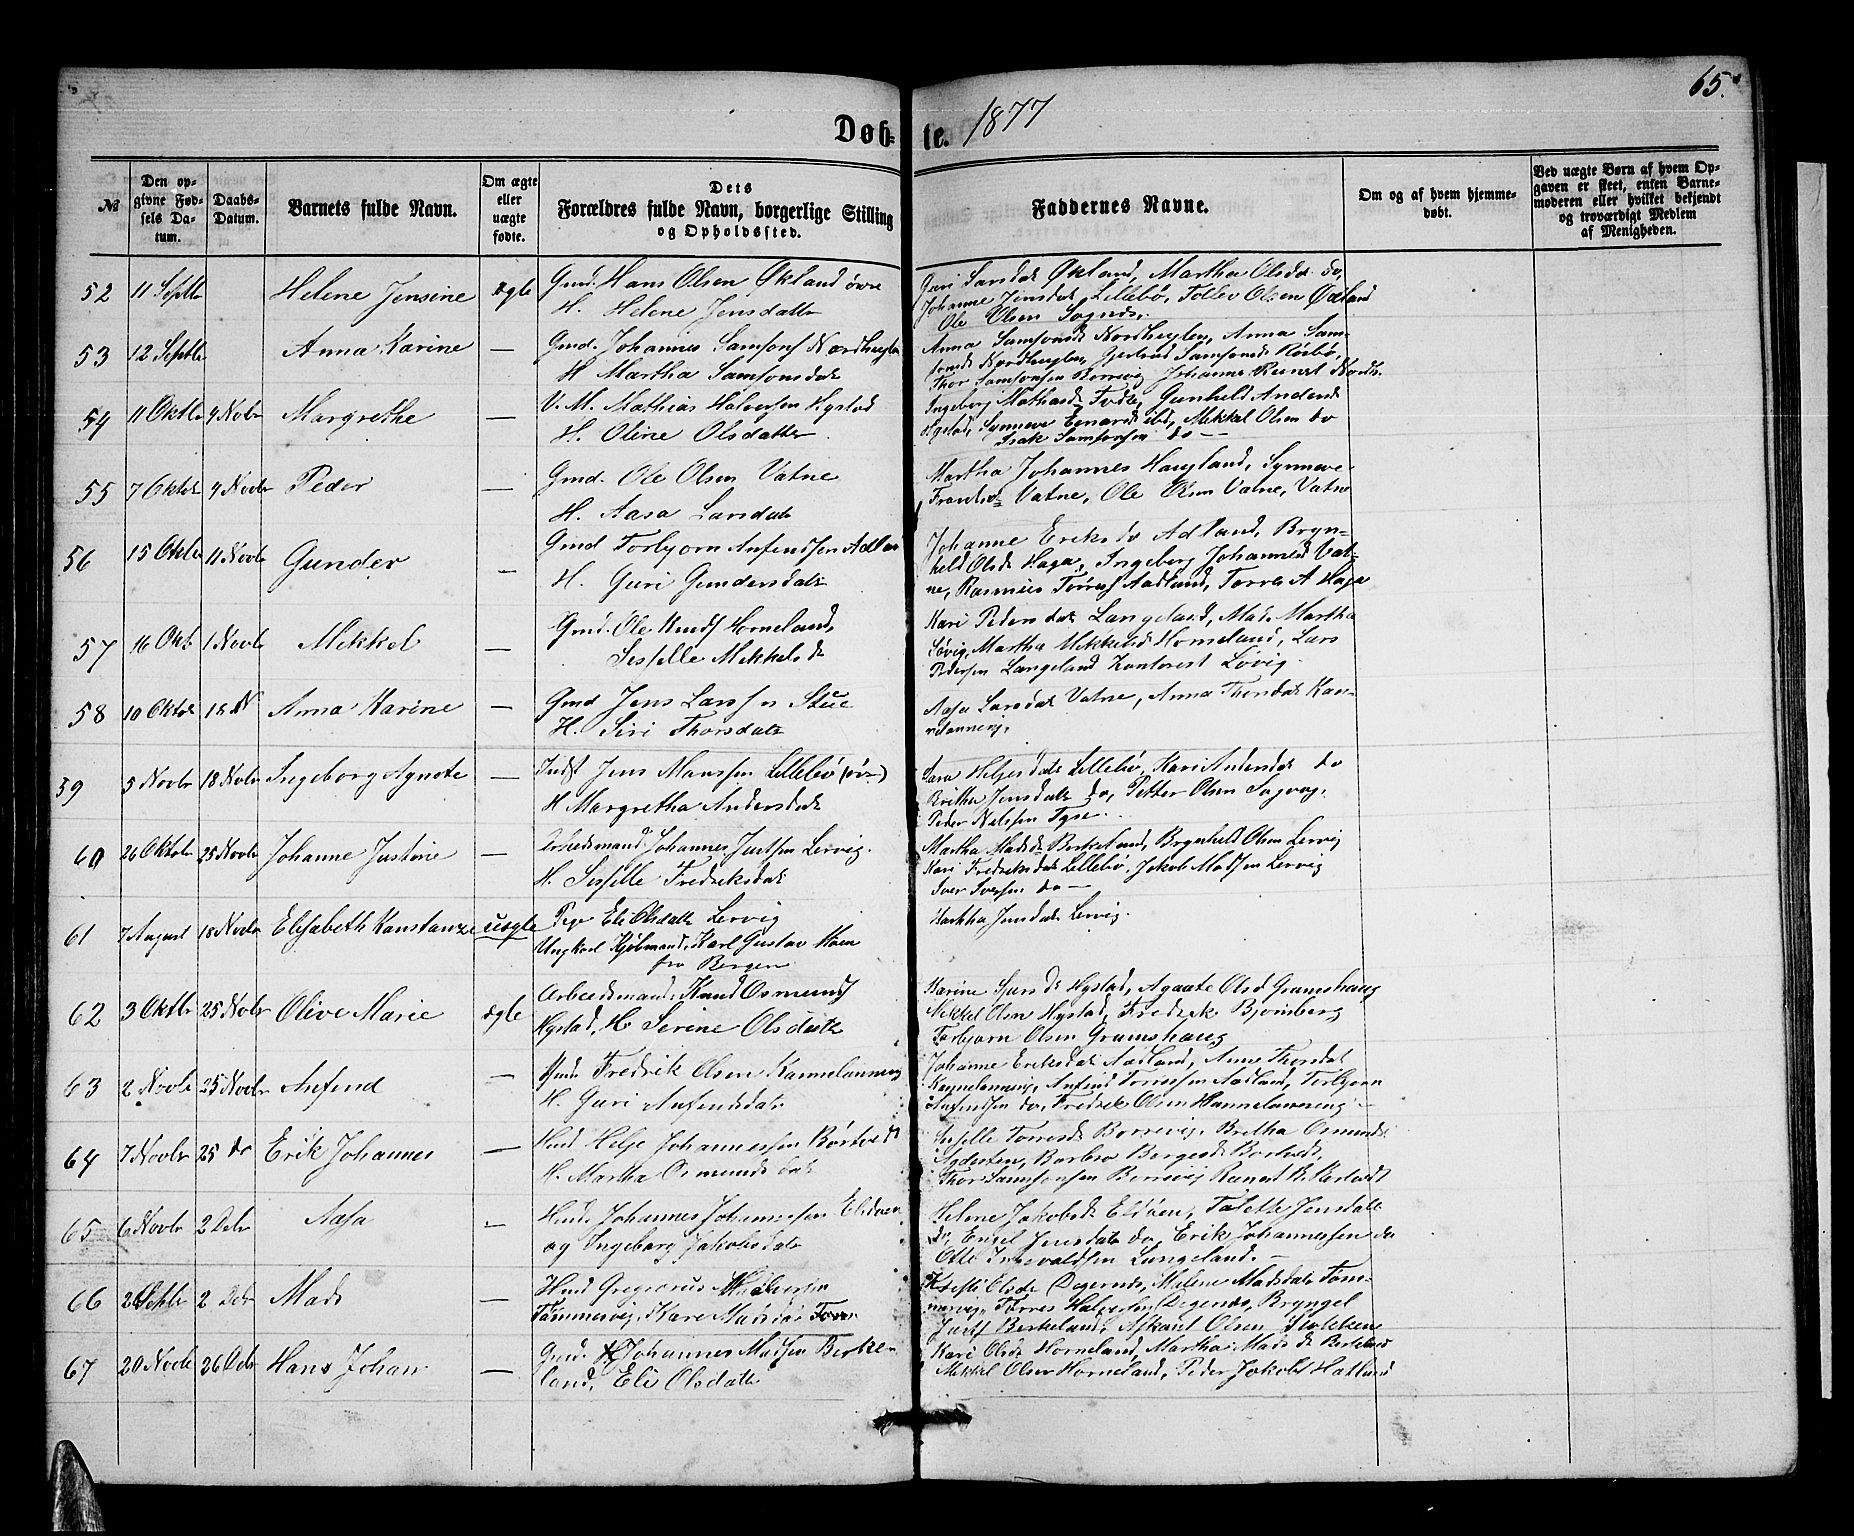 65.
Døb-te. 1877
№
Den opgivne Fødsels Datum.
Daabs-Datum.
Barnets fulde Navn.
Om ægte eller uægte fødte.
Dets Forældres fulde Navn, borgerlige Stilling og Opholdssted.
Faddernes Navne.
Om og af hvem hjemmedøbt.
Ved uægte Børn af hvem Opgaven er skeet, enten Barnemoderen eller hvilket bekjendt og troværdigt Medlem af Menigheden.
52 11 Septbr Helene Jensine ægte Gmd. Hans Olsen Økland øvre
H. Helene Jensdattr
Guri Larsdat Økland, Martha Olsdat do,
Johanne Jensdat Lillebø, Tollev Olsen Økland
Ole Olsen
53 12 Septbr Anna Karine — Gmd. Johannes Samsons Nordhuglen
H Martha Samsonsdat
Anna Samsonsd Nordhuglen, Anna Sam-
sonsd Nordhuglen, Gjertrud Samsonsd Røsbø,
Thor Samsonsen Borrevig Johannes
54 11 Oktbr 4 Novbr Margrethe — V. M. Mathias Halvorsen Hystad
H. Oline Olsdatter.
Ingeborg Gunhild Andersd
Hystad, Synneve Mikkel Olsen do
Isak Samsonsen do —
55 7 Oktbr 4 Novbr Peder — Gmd. Ole Olsen Vatne
H. Aasa Larsdatr
Martha Johannes Haugland, Synneve
Vatne, Ole Olsen Vatne, Vatne
56 15 Oktbr 11 Novbr Gunder — Gmd Torbjorn Anfendsen Adlan
H. Guri Gundersdatr
Johanne Eriksdr Adland, Bryn-
hild Olsd Haga, Ingeborg Johannesd Vat-
ne, Rasmus Tørres Aadland, Torres A Haga
57 16 Okt 1 Novbr Mikkel — Gmd. Ole Knuds Horneland,
Sesselle Mikkelsd
Kari Pedersdat Langeland, Mad. Martha
Løvig, Martha Mikkelsd Horneland, Lars
Pedersen Langeland Løvig.
58 10 Oktbr 18 N Anna Karine — Gmd Jens Larssen Stue
H. Siri Thorsdatr
Aasa Larsdat Vatne, Anna Thorsdat Kan-
nelønning.
59 5 Novbr 18 Novbr Ingeborg Agnete — Indst Jens Monssen Lillebø (øvr)
H Margretha Andersdatr
Sara Heljesdatr Lillebø, Kari Andersdat do
Britha Jensdatr do, Petter Olsen Sagvag,
Peder Nelssen Tyse.
60 26 Oktobr 25 Novbr Johanne Justine — Arbeidsmand Johannes Justsen Lervig.
H. Sesselle Fredriksdat
Martha Madsdr Berkeland, Brynhild Olsen Lervig
Kari Fredriksdat Lillebø, Jakob Madsen Lervig
Iver Iversen do —
61 7 August 18 Novbr Elisabeth Konstanze uægte Pige Eli Olsdatr Lervig
Ungkarl Kjøbmand, Karl Gustav
fra Bergen
Martha Jensdat Lervig.
62 3 Oktbr 25 Novbr Olive Marie ægte Arbeidsmand Knud Osmunds
Hystad, H. Serine Olsdatr
Karine Hystad, Agaate Olsd Gramshaug
Mikkel Olsen Hystad, Fredrik Bjornberg
Torbjorn Olsen Gramshaug
63 2 Novbr 25 Novbr Anfend — Fredrik Olsen Kannelønning
H. Guri Anfensdatr
Johanne Eriksdat Aadland, Anne Thorsdat
Kannelønning, Anfend Torressen Aadland, Torbjorn
Anfendsen do, Fredrik Olsen Kannelønning
64 7 Novbr 25 do Erik Johannes — Helje Johannessen Børtvedt
H. Martha Osmundsdat
Sesselle Torresd Borrevig, Bretha Osmunds
Agdesten, Barbro Borgesd Bortvedt,
Thor Samsonsen Borrevig
65 6 Novbr 2 Debr Aasa — Johannes Johannessen
og Ingeborg Jakobsdatr
Helene Jakobsd Eldøen, Talette Jensdatr
do, Engel Jensdatr do, Erik Johannessen do
Otto Ingvaldsen Langeland.
66 2 Debr Mads — Gregorius
Tømmervig, Kari Madsdat
Olsdr Degernes, Malene Madsdatr Tøm-
mervig, Tørres Halvorsen Degernes, Bryngel
Justs Berkeland, Olsen
67 20 Novbr 26 Debr Hans Johan — Gmd. Johannes Madsen Berke-
land, Eli Olsdatr
Kari Olsdr Horneland, Martha Madsdr Berkeland
Mikkel Olsen Horneland, Peder Jakobs Hatland